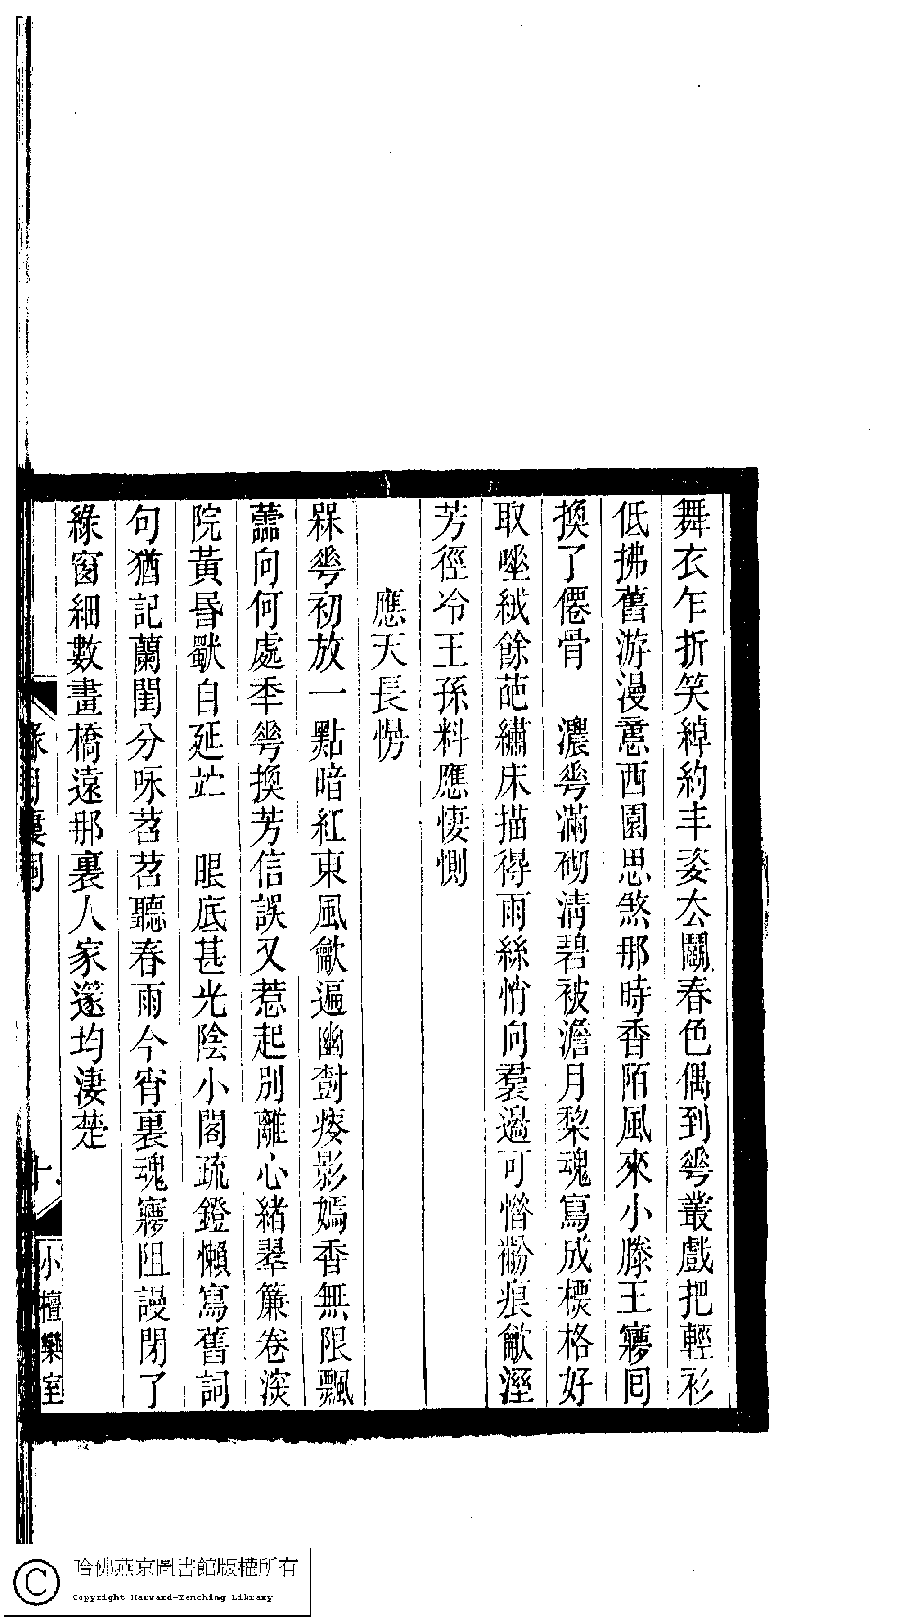 舞衣乍折笑綽約丰姿厺鬭春色偶到蕐叢戲把輕衫
低拂舊游漫憙西園思煞那時香陌風來小滕王㝱囘
換了僊骨　濃蕐滿砌淸碧被澹月棃魂寫成標格好
取唾絨餘葩繡床描得雨絲悄向羣過可惜粉痕歈溼
芳徑冷王孫料應悽惻
應天長㥬
槑蕐初放一點暗紅東風歈遍幽尌痿影嫣香無限飄
蘦向何處秊蕐換芳信誤又惹起別離心緒翠簾卷淡
院黃昏獸自延竚　眼底甚光陰小閣疏鐙懶寫舊詞
句猶記蘭閨分咏苕苕聽春雨今宵裏魂㝱阻謾閉了
綠窗細數畫橋遠那裏人家邃均淒楚
小檀欒室
哈佛燕京圖書館版權所有
Copyright Harvard-Yenching Library